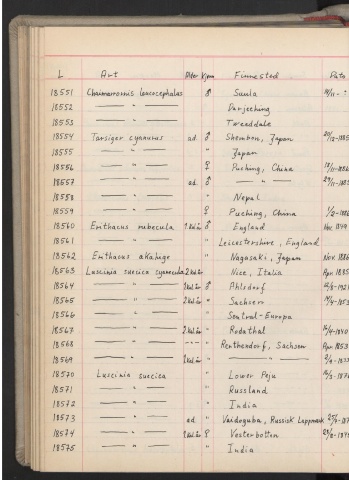 L Art Alder Kjønn Finnested Dato
18551 Chaimarrornis leucocephalus ♂ Suula
18552 — " — Darjeeling
18553 — " — Tweeddale
18554 Tarsiger cyanurus ad. ♂ Shembon, Japan
18555 — " — " Japan
18556 — " — ♀ Puching, China
18557 — " — ad. ♂ — " —
18558 — " — " Nepal
18559 — " — ♀ Puching, China
18560 Erithacus rubecula 1 kal år ♂ England Nov 1894
18561 — " — " Leicestershire, England
18562 Erithacus akahige " Nagasaki, Japan Nov 1886
18563 Luscinia suecica cyanecula 2 kal år " Nice, Italia Apr. 1885
18564 — " — 1 kal år ♂ Ahlsdorf
18565 — " — 2 kal år " Sachsen
18566 — " — " Sentral-Europa
18567 — " — 2 kal år " Rodathal
18568 — " — — " — " Renthendorf, Sachsen Apr. 1853
18569 — " — 2 kal år " — " —
18570 Luscinia suecica " Lower Peju
18571 — " — " Russland
18572 — " — " India
18573 — " — ad " Vaidoguba, Russisk Lappmark
18574 — " — 1 kal år ♀ Vesterbotten
18575 — " — " India